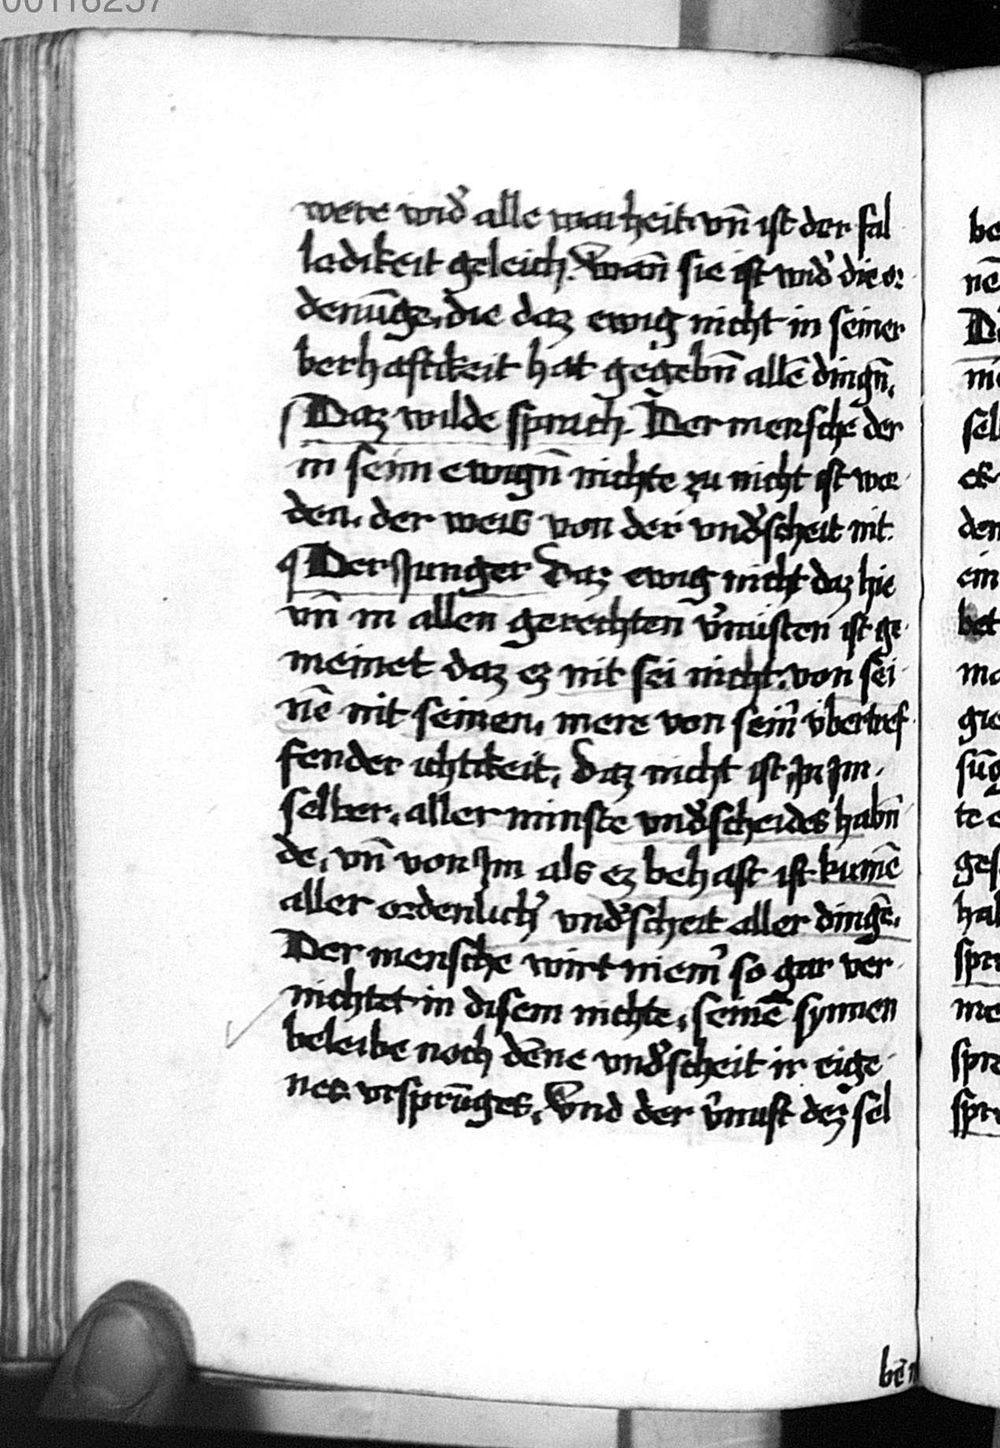 00116257
were wid̕ alle warheit. vn̄ ist der fal
ladikeit geleich. Wan̄ sie ist wid̕ die or
denūge, die daz ewig nicht in seiner
berhaftikeit hat gegebn̄ allē dingn̄.
Daz wilde sprach. Der mensche der
in seim ewign̄ nichte zu nicht ist wor
den. der weis von der vnd̕scheit nit.
Der Junger Daz ewig nicht daz hie
vn̄ in allen gerechten v̕nüften ist ge
meinet daz ez nit sei nicht. von sei
nē nit seinen, mere von seim̄ v̈bertref
fender ichtikeit, daz nicht ist, Jn Jm
selber. aller minste vnd̕scheides habn̄
de, vn̄ von Jm als ez behaft ist kumē
aller ordenlich̕ vnd̕scheit aller dingē.
Der mensche wirt niem̄ so gar ver
nichtet in disem nichte, seinē synnen
beleibe noch dēne vnd̕scheit ir eige
nes vrsprūges, Vnd der v̕nuft dez sel
be
nē
sel
den
ein
bet
ma
gie
sūg
te e
ges
hab
spra
me
spra
spra